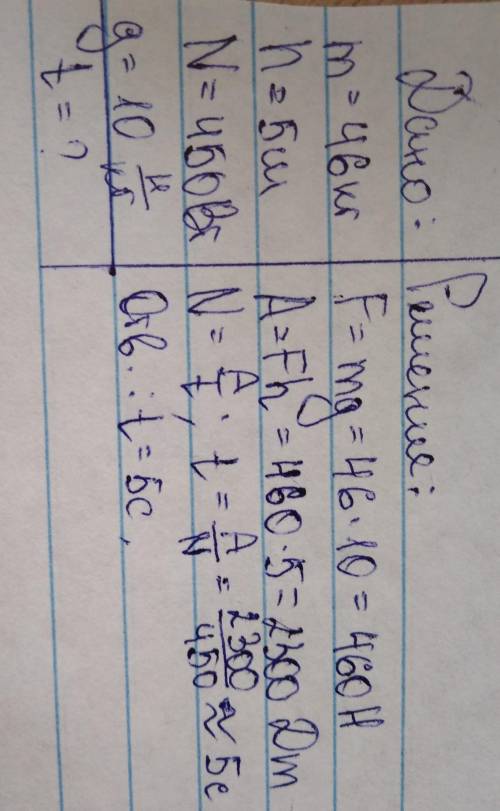 Дано:
m = 46 кг
h = 5 м
N = 450 Вт
g = 10 н/кг
t = ?
Решение:
F = mg = 46·10 = 460 Н
A = Fh = 460·5 = 2300 Дж
N = A/t; t = A/N = 2300/450 ≈ 5с
Отв.: t = 5с.